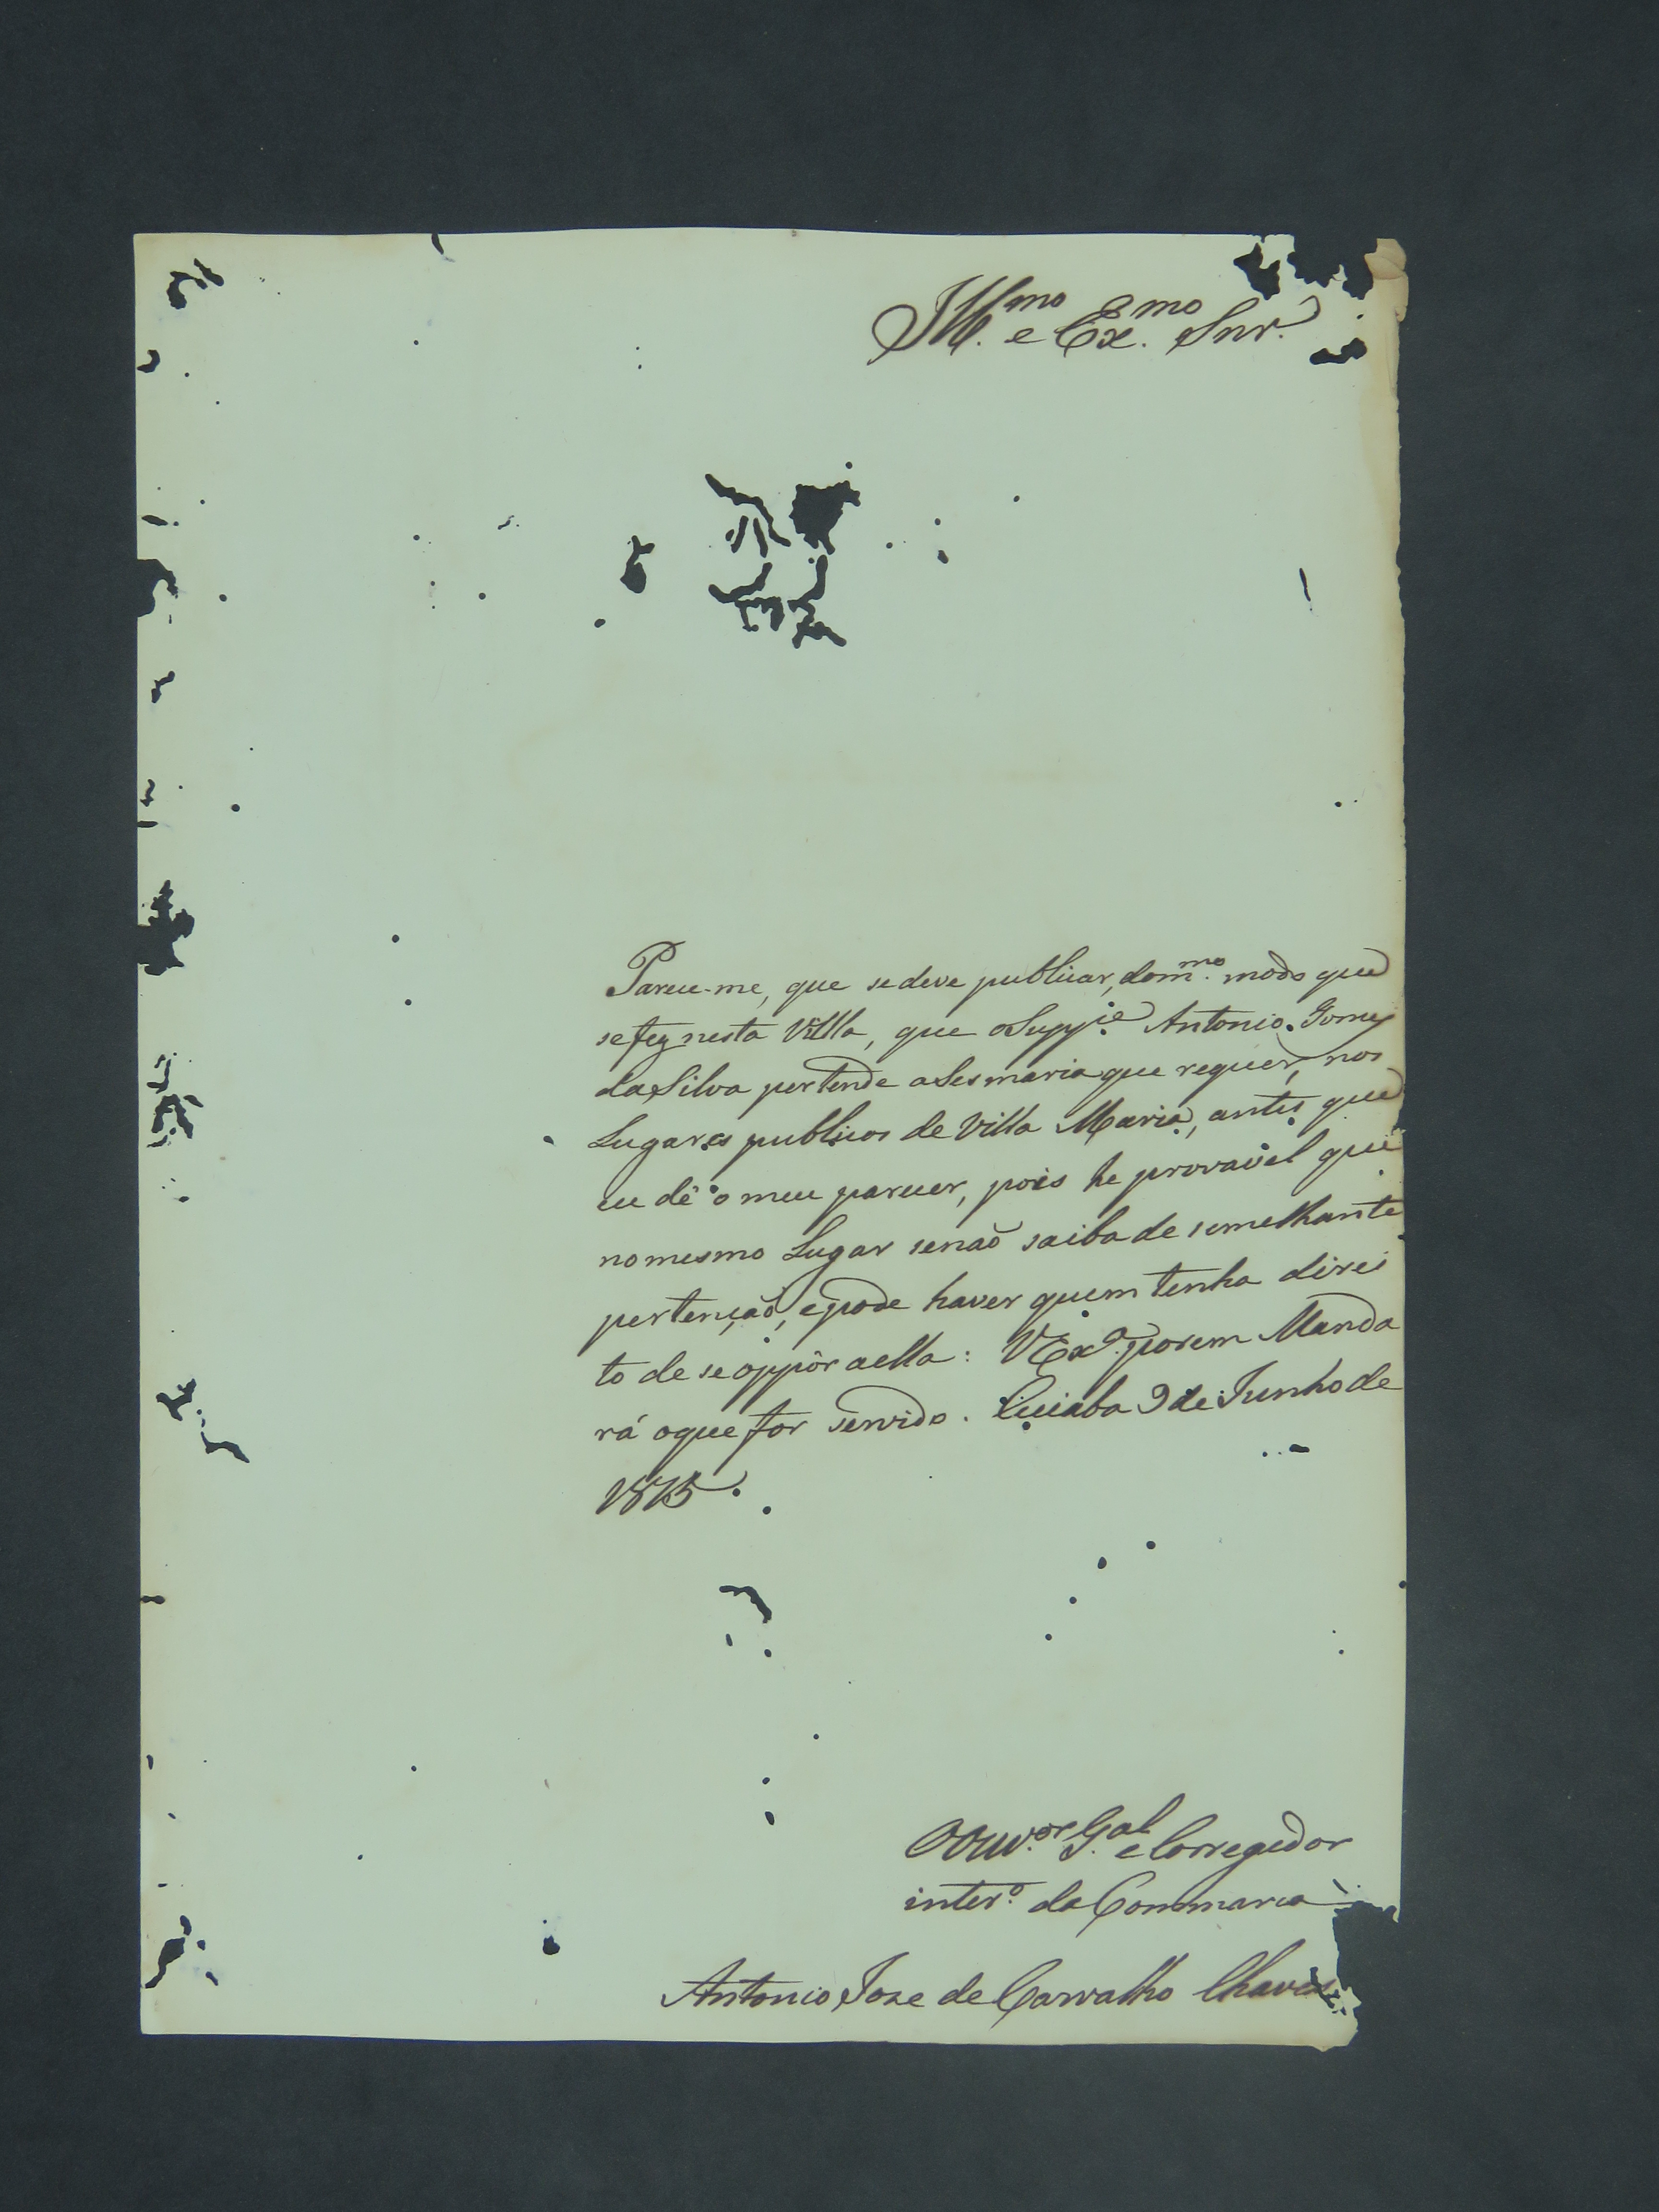 Ill.mo e Ex.mo Snr.
Parece-me, que se deve publicar, do m.mo modo que
se fez nesta Villa, que o Supp.e Antonio Gomes
da Silva pertende a Sesmaria que requer, nos
Lugares publicos de Villa Maria, antes que
eu dê o meu parecer, pois he provavel que
no mesmo Lugar se naõ saiba de semelhante
pertençaõ, e pode haver quem tenha direi
to de se oppôr a ella: VExª. porem Manda
rá o que for servido. Cuiaba 9 de Junho de
1815.
O Ouv.or G.al e Corregedor
inter.o da Commarca
Antonio Joze de Carvalho Chaves